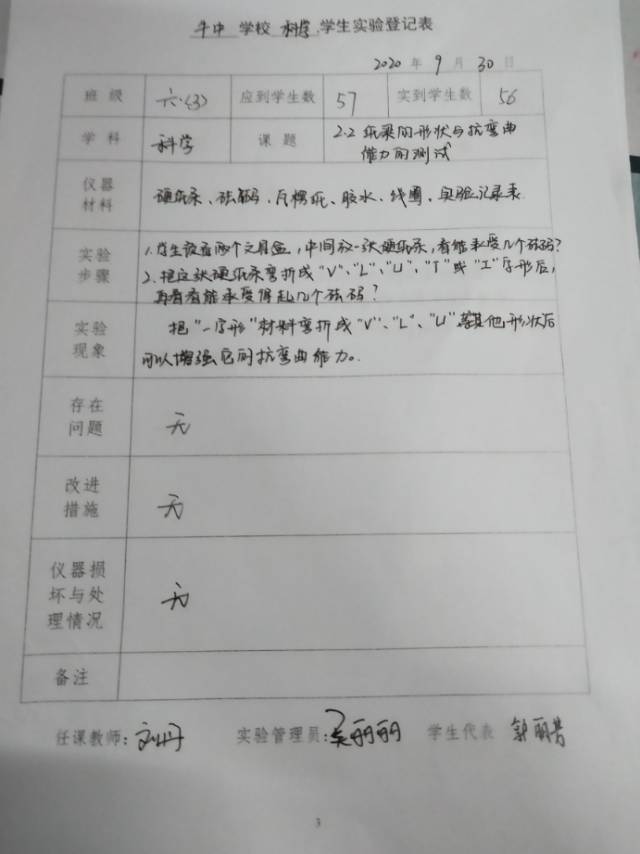 牛中 学校 科学 学生实验登记表
2020 年 9 月 30 日
班级 六.(3) 应到学生数 57 实到学生数 56
学科 科学 课题 2.2 纸梁的形状与抗弯曲
能力的测试
仪器
材料
硬纸条、砝码、瓦楞纸、胶水、线圈、实验记录表
实验
步骤
1.学生设置两个文具盒，中间放一张硬纸条，看能承受几个砝码？
2.把这张硬纸条弯折成"V"、"L"、"U"、"T"或"工"字形后，
再看看能承受得起几个砝码？
实验
现象
把"一字形"材料弯折成"V"、"L"、"U"等其他形状后
可以增强它的抗弯曲能力。
存在
问题
无
改进
措施
无
仪器损
坏与处
理情况
无
备注
任课教师：刘丹 实验管理员：吴丽丽 学生代表 郭丽芳
3